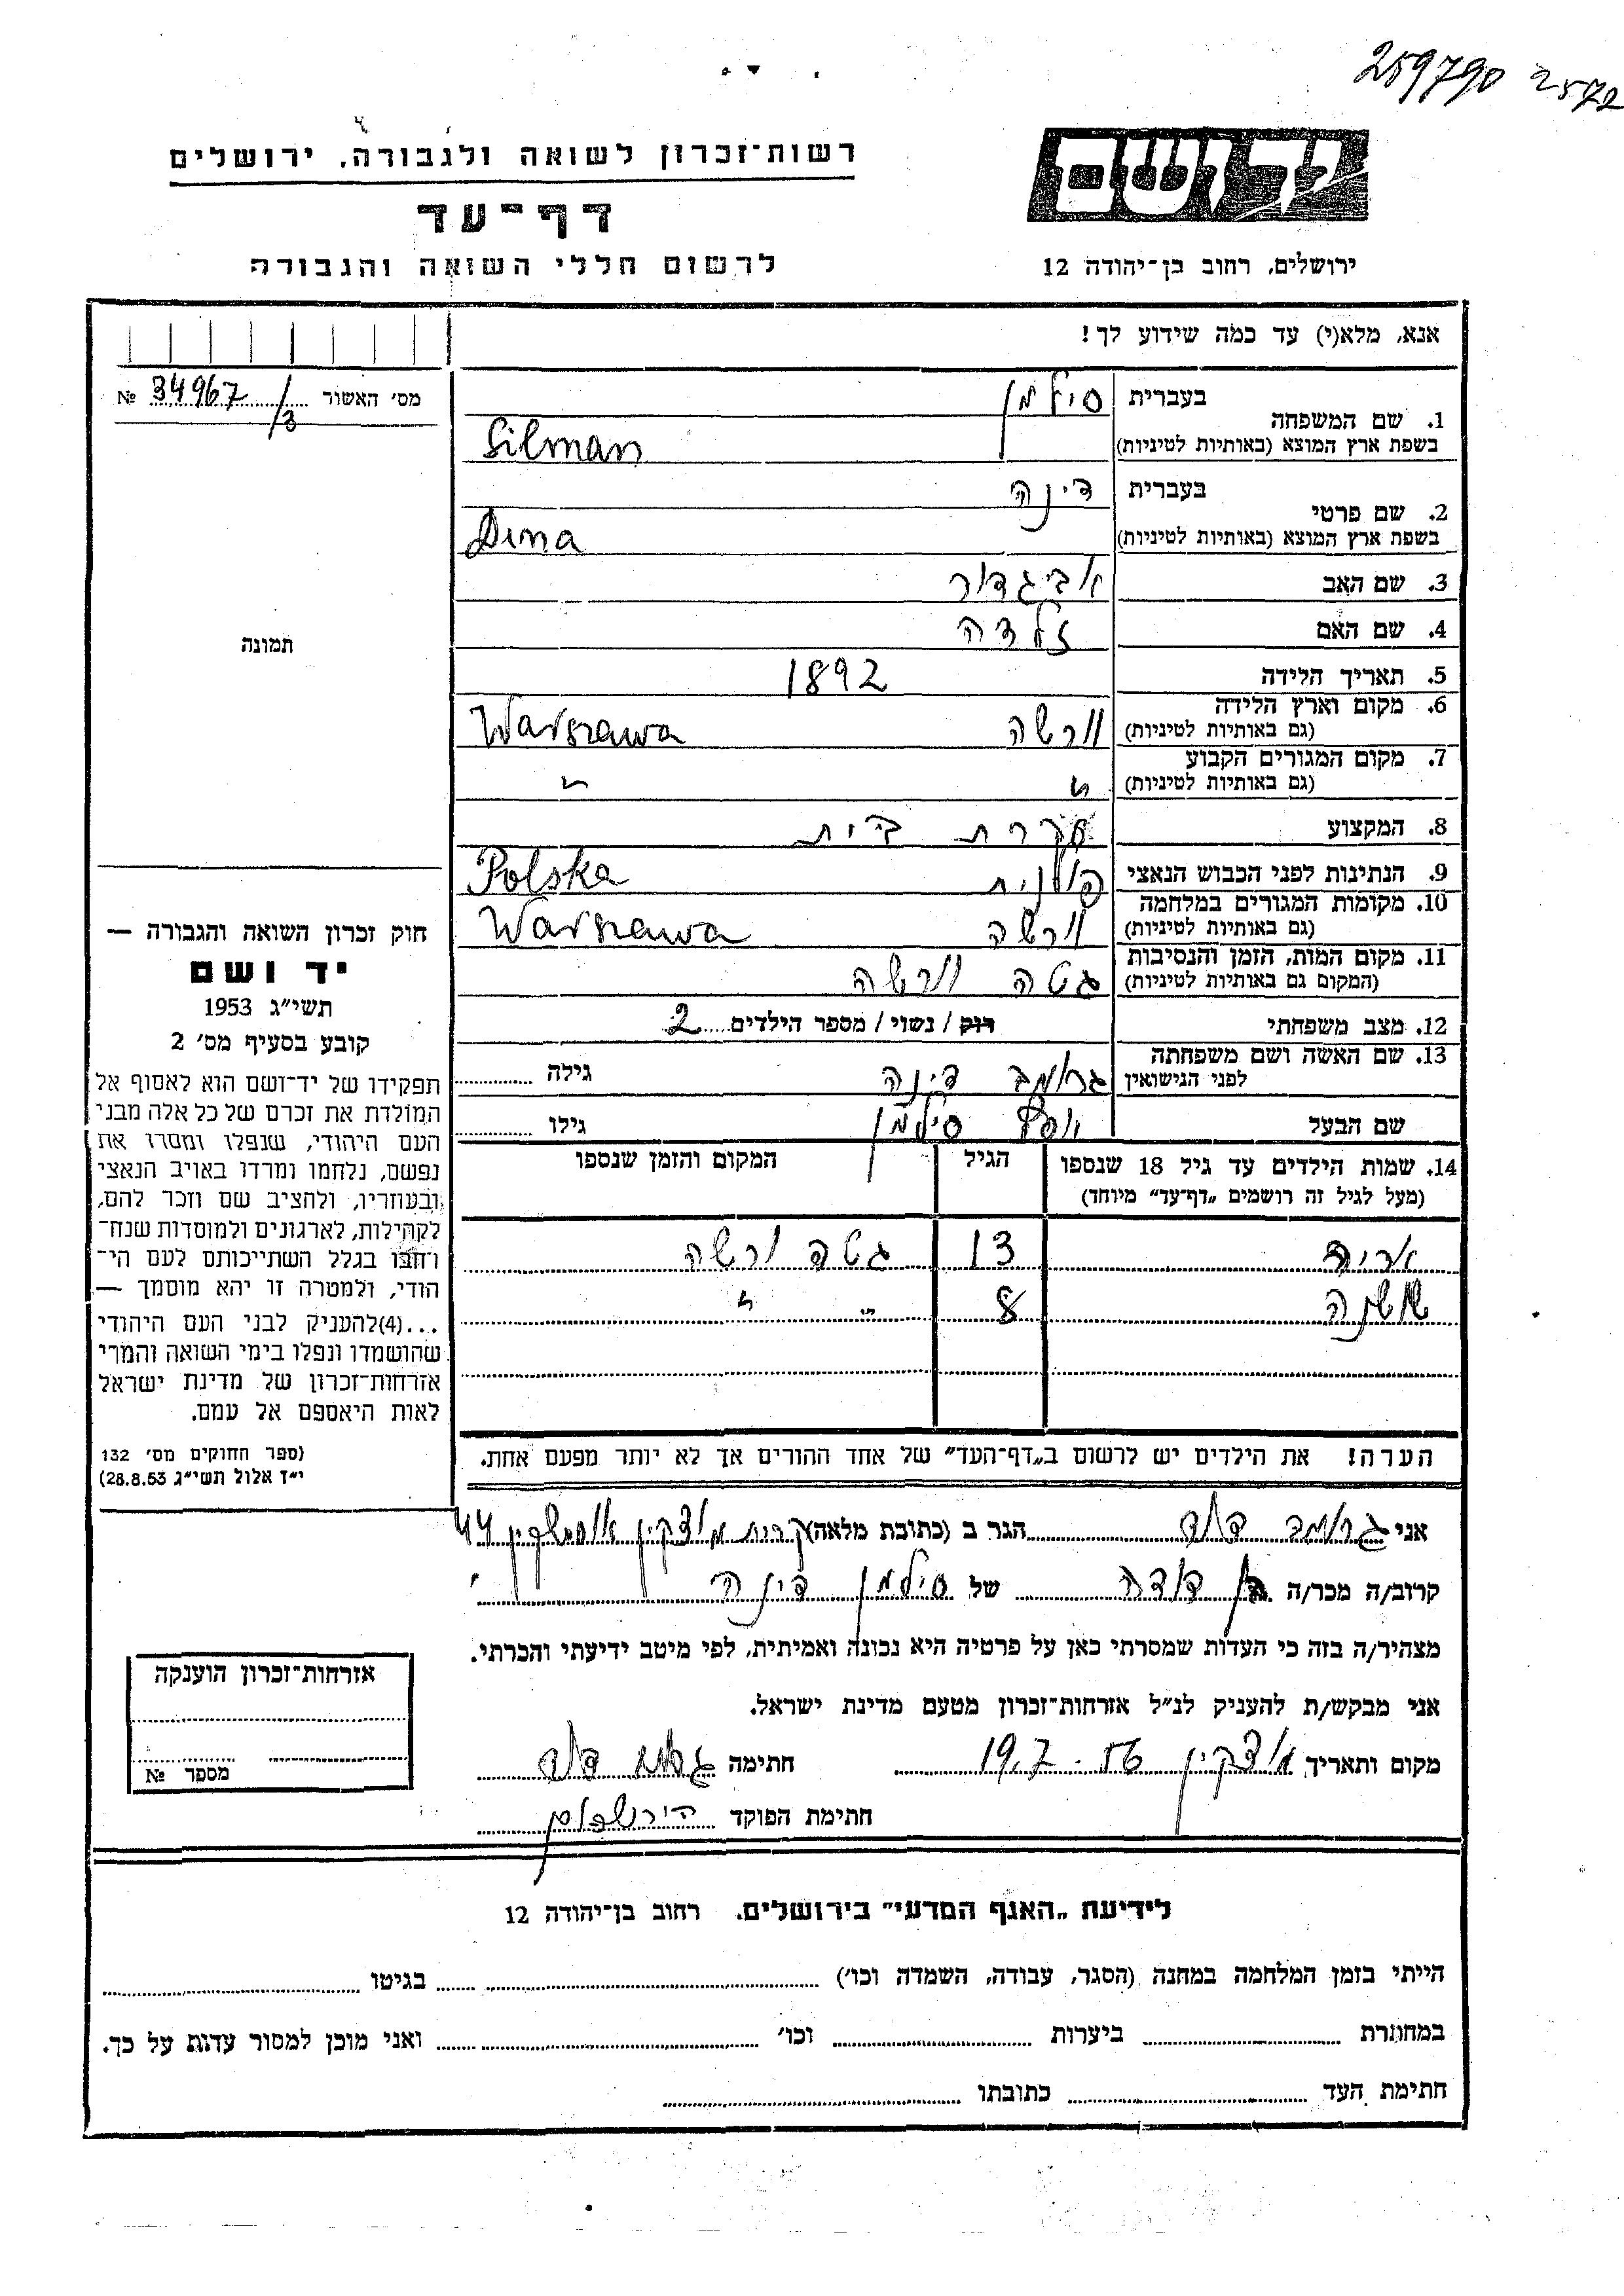 259790 2572
רשות־זכרון לשואה ולגבורה, ירושלים
דף־עד
לרשום חללי השואה והגבורה
יד ושם
ירושלים, רחוב בן־יהודה 12
אנא, מלא(י) עד כמה שידוע לך!
מס׳ האשור 34967/3 №
1. שם המשפחה בעברית סילמן
בשפת ארץ המוצא (באותיות לטיניות) Silman
2. שם פרטי בעברית דינה
בשפת ארץ המוצא (באותיות לטיניות) Dina
3. שם האב אביגדור
4. שם האם זלדה
5. תאריך הלידה 1892
6. מקום וארץ הלידה (גם באותיות לטיניות) וורשה Warszawa
7. מקום המגורים הקבוע (גם באותיות לטיניות) " "
8. המקצוע עקרת בית
9. הנתינות לפני הכבוש הנאצי פולנית Polska
10. מקומות המגורים במלחמה (גם באותיות לטיניות) וורשה Warszawa
11. מקום המות, הזמן והנסיבות (המקום גם באותיות לטיניות) גטה וורשה
12. מצב משפחתי רוק / נשוי / מספר הילדים 2
13. שם האשה ושם משפחתה לפני הנישואין דינה גילה
שם הבעל יוסף סילמן גילו
14. שמות הילדים עד גיל 18 שנספו
(מעל לגיל זה רושמים „דף־עד” מיוחד)
הגיל
המקום והזמן שנספו
אריה 13 גטה ורשה
שושנה 8 " "
הערה! את הילדים יש לרשום ב„דף־העד” של אחד ההורים אך לא יותר מפעם אחת.
תמונה
חוק זכרון השואה והגבורה —
יד ושם
תשי״ג 1953
קובע בסעיף מס׳ 2
תפקידו של יד־ושם הוא לאסוף אל
המולדת את זכרם של כל אלה מבני
העם היהודי, שנפלו ומסרו את
נפשם, נלחמו ומרדו באויב הנאצי
ובעוזריו, ולהציב שם וזכר להם,
לקהילות, לארגונים ולמוסדות שנח־
רבו בגלל השתייכותם לעם הי־
הודי, ולמטרה זו יהא מוסמך —
...(4)להעניק לבני העם היהודי
שהושמדו ונפלו בימי השואה והמרי
אזרחות־זכרון של מדינת ישראל
לאות היאספם אל עמם.
(ספר החוקים מס׳ 132
י״ז אלול תשי״ג 28.8.53)
אני דוד הגר ב (כתובת מלאה) קרית מוצקין 44
קרוב/ה מכר/ה בן דודה של סילמן דינה
מצהיר/ה בזה כי העדות שמסרתי כאן על פרטיה היא נכונה ואמיתית, לפי מיטב ידיעתי והכרתי.
אני מבקש/ת להעניק לנ״ל אזרחות־זכרון מטעם מדינת ישראל.
מקום ותאריך מוצקין 19.7.56 חתימה דוד
חתימת הפוקד
אזרחות־זכרון הוענקה
מספר №
לידיעת „האגף המדעי” בירושלים. רחוב בן־יהודה 12
הייתי בזמן המלחמה במחנה (הסגר, עבודה, השמדה וכו׳) בגיטו
במחתרת ביערות וכו׳ ואני מוכן למסור עדות על כך.
חתימת העד כתובתו